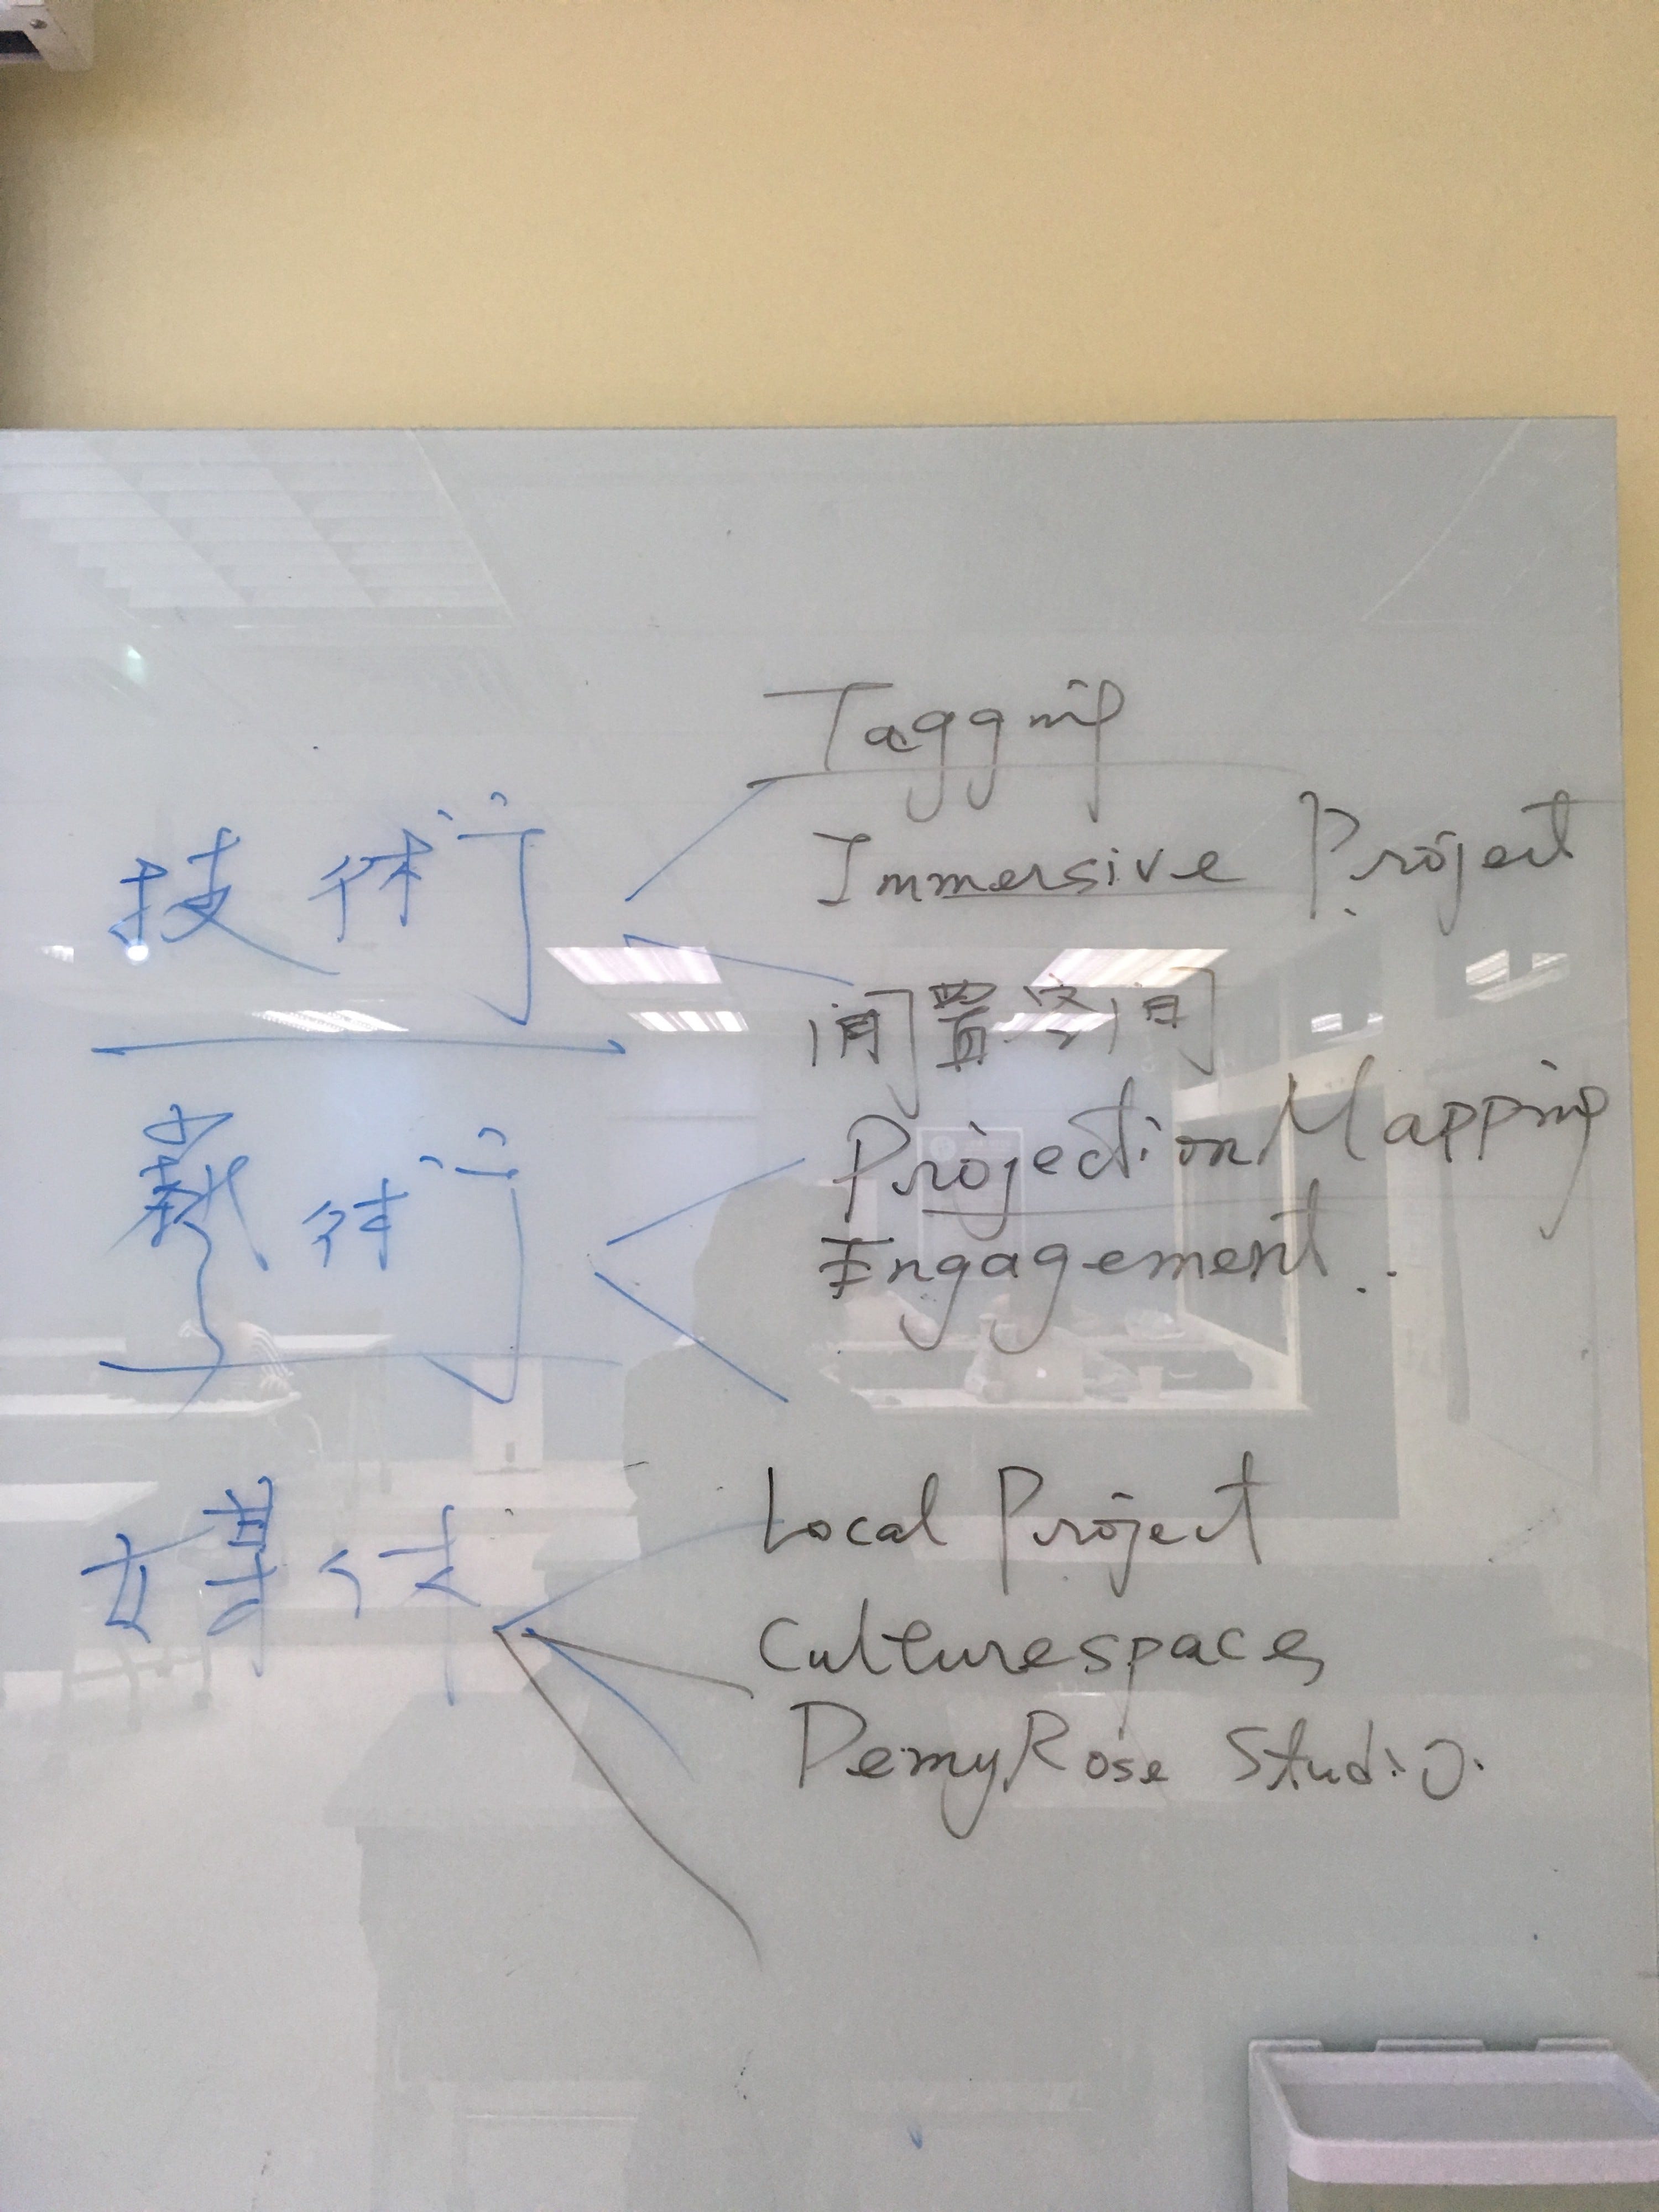 技術
Tagging
Immersive Project
闲置空间
藝術
Projection Mapping
Engagement.
媒体
Local Project
Culturespaces
DemyRose Studio.